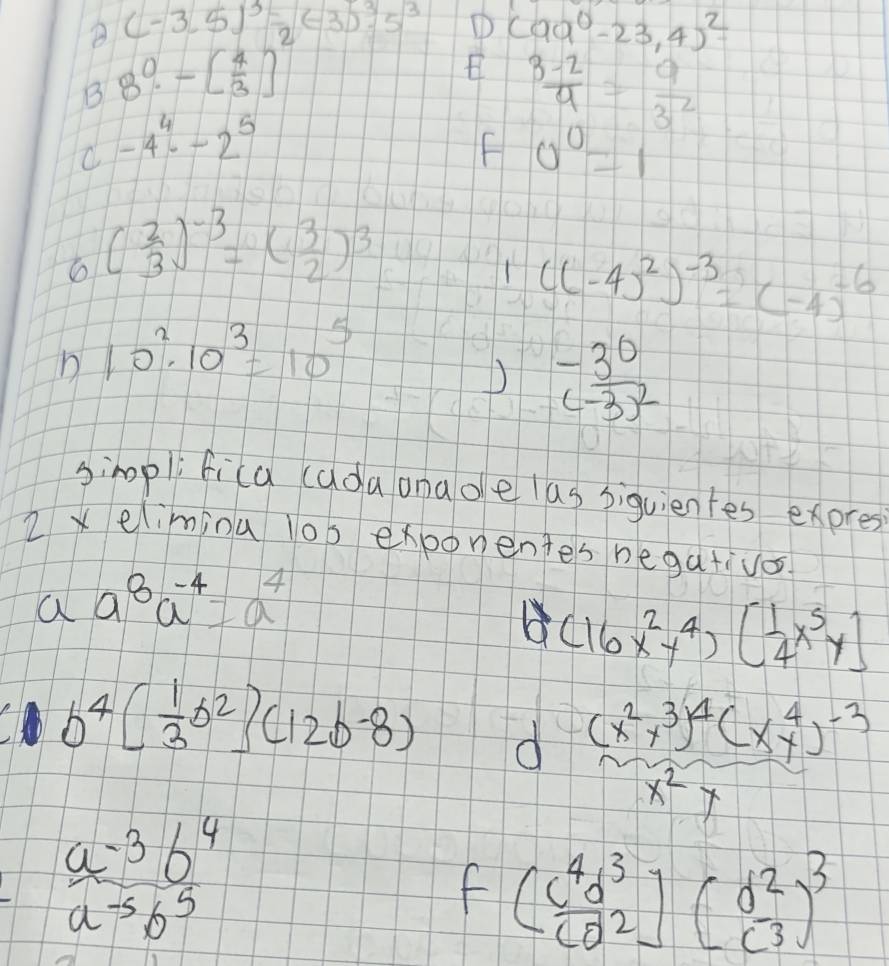 a (-3.5)³ = (-3)³ 5³
D (99⁰ - 23,4)²
B 8⁰ · -[4/3]²
E 3-2/9 = 9/3²
C -4⁴ · -2⁵
F 0⁰ = 1
G (2/3)⁻³ = (3/2)³
I ((-4)²)⁻³ = (-4)⁻⁶
h 10² · 10³ = 10⁵
J -3⁰/(-3)²
simplifica cada una de las siguientes expresi
2 y elimina los exponentes negativos.
a a⁸a⁻⁴ = a⁴
b (16x²y⁴) [1/4 x⁵y]
c b⁴ [1/3 b²] (12b-8)
d (x²y³)⁴ (xy⁴)⁻³/x²y
a⁻³b⁴/a⁻⁵b⁵
F (c⁴d³/cd²] (d²/c³)³